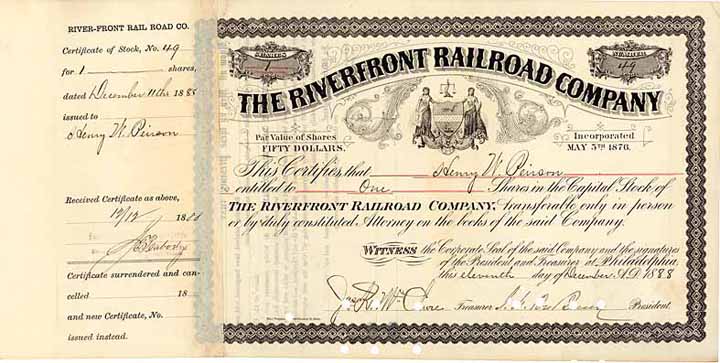 RIVER-FRONT RAIL ROAD CO.
Certificate of Stock, No. 49
for 1 shares,
dated December 11th 1888
issued to
Henry W.
Received Certificate as above,
12/12 1888
Peabody
Certificate surrendered and can-
celled 18
and new Certificate, No.
issued instead.
SHARES
1
NUMBER
49
THE RIVERFRONT RAILROAD COMPANY
Par Value of Shares
FIFTY DOLLARS.
Incorporated
MAY 5TH 1876.
This Certifies that Henry W.
entitled to One Shares in the Capital Stock of
THE RIVERFRONT RAILROAD COMPANY, transferable only in person
or by duly constituted Attorney on the books of the said Company.
WITNESS the Corporate Seal of the said Company and the signatures
of the President and Treasurer at Philadelphia,
this eleventh day of December A.D. 1888
Treasurer
President.